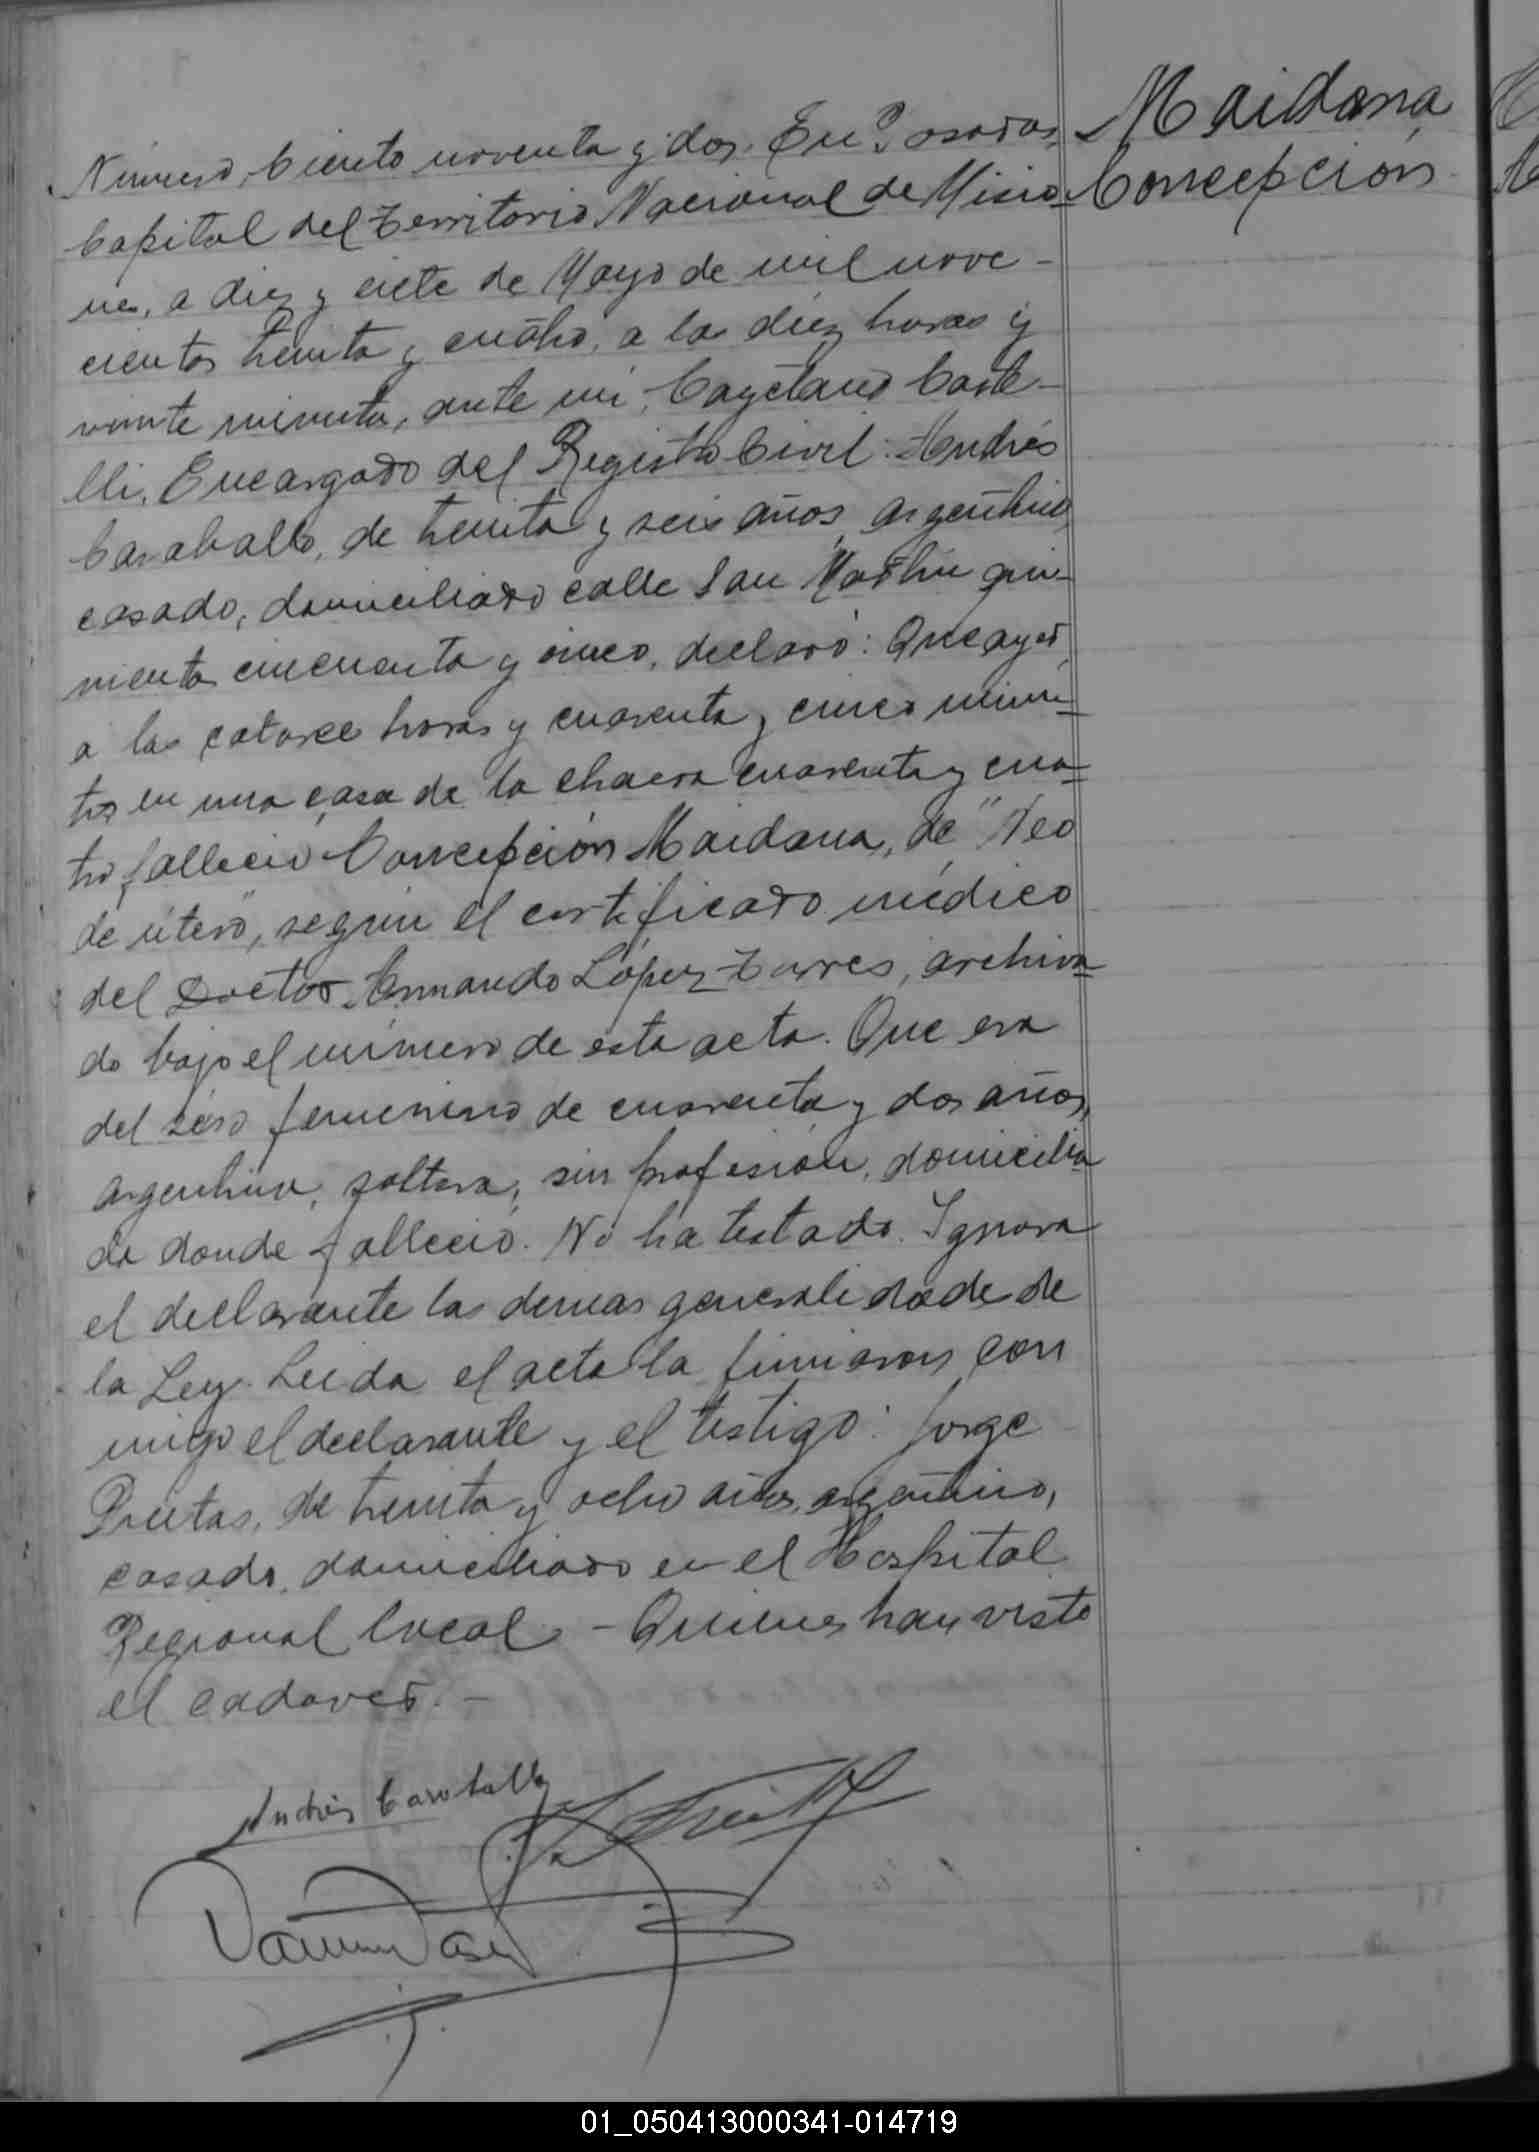 Maidana
Concepción
Número Ciento noventa y dos. En Posadas,
Capital del Territorio Nacional de Misio-
nes, a diez y siete de Mayo de mil nove-
cientos treinta y cuatro, a las diez horas y
veinte minutos, ante mí, Cayetano Caste-
lli, Encargado del Registro Civil: Andrés
Caraballo, de treinta y seis años, argentino,
casado, domiciliado calle San Martín qui-
nientos cincuenta y cinco, declaró: Que ayer
a las catorce horas y cuarenta y cinco minu-
tos en una casa de la chacra cuarenta y cua-
tro falleció Concepción Maidana, de "Neo
de útero", según el certificado médico
del Doctor Armando López Torres, archiva-
do bajo el número de esta acta. Que era
del sexo femenino de cuarenta y dos años,
argentina, soltera, sin profesión, domicilia-
da donde falleció. No ha testado. Ignora
el declarante las demas generalidade de
la Ley. Leida el acta la firmaron con
migo el declarante y el testigo: Jorge
Prietas, de treinta y ocho años, argentino,
casado, domiciliado en el Hospital
Regional local. - Quienes han visto
el cadaver. -
Andrés Caraballo
01_050413000341-014719